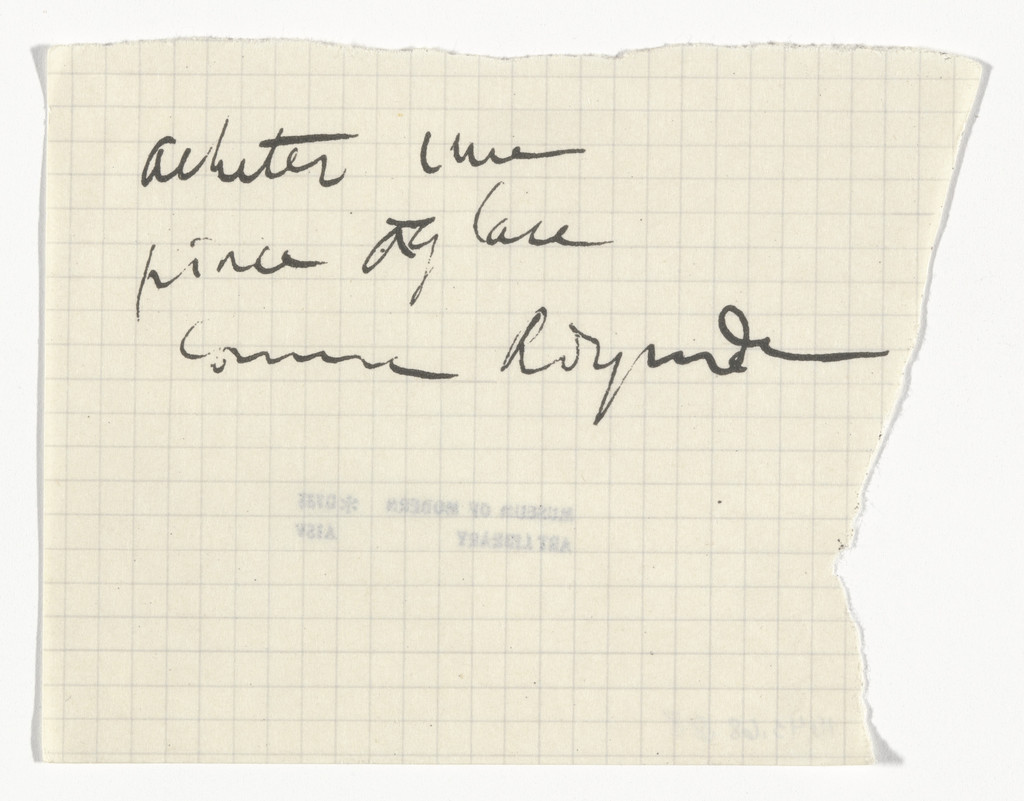 acheter une
pince à glace
comme Raymonde
MUSEUM OF MODERN
ART LIBRARY